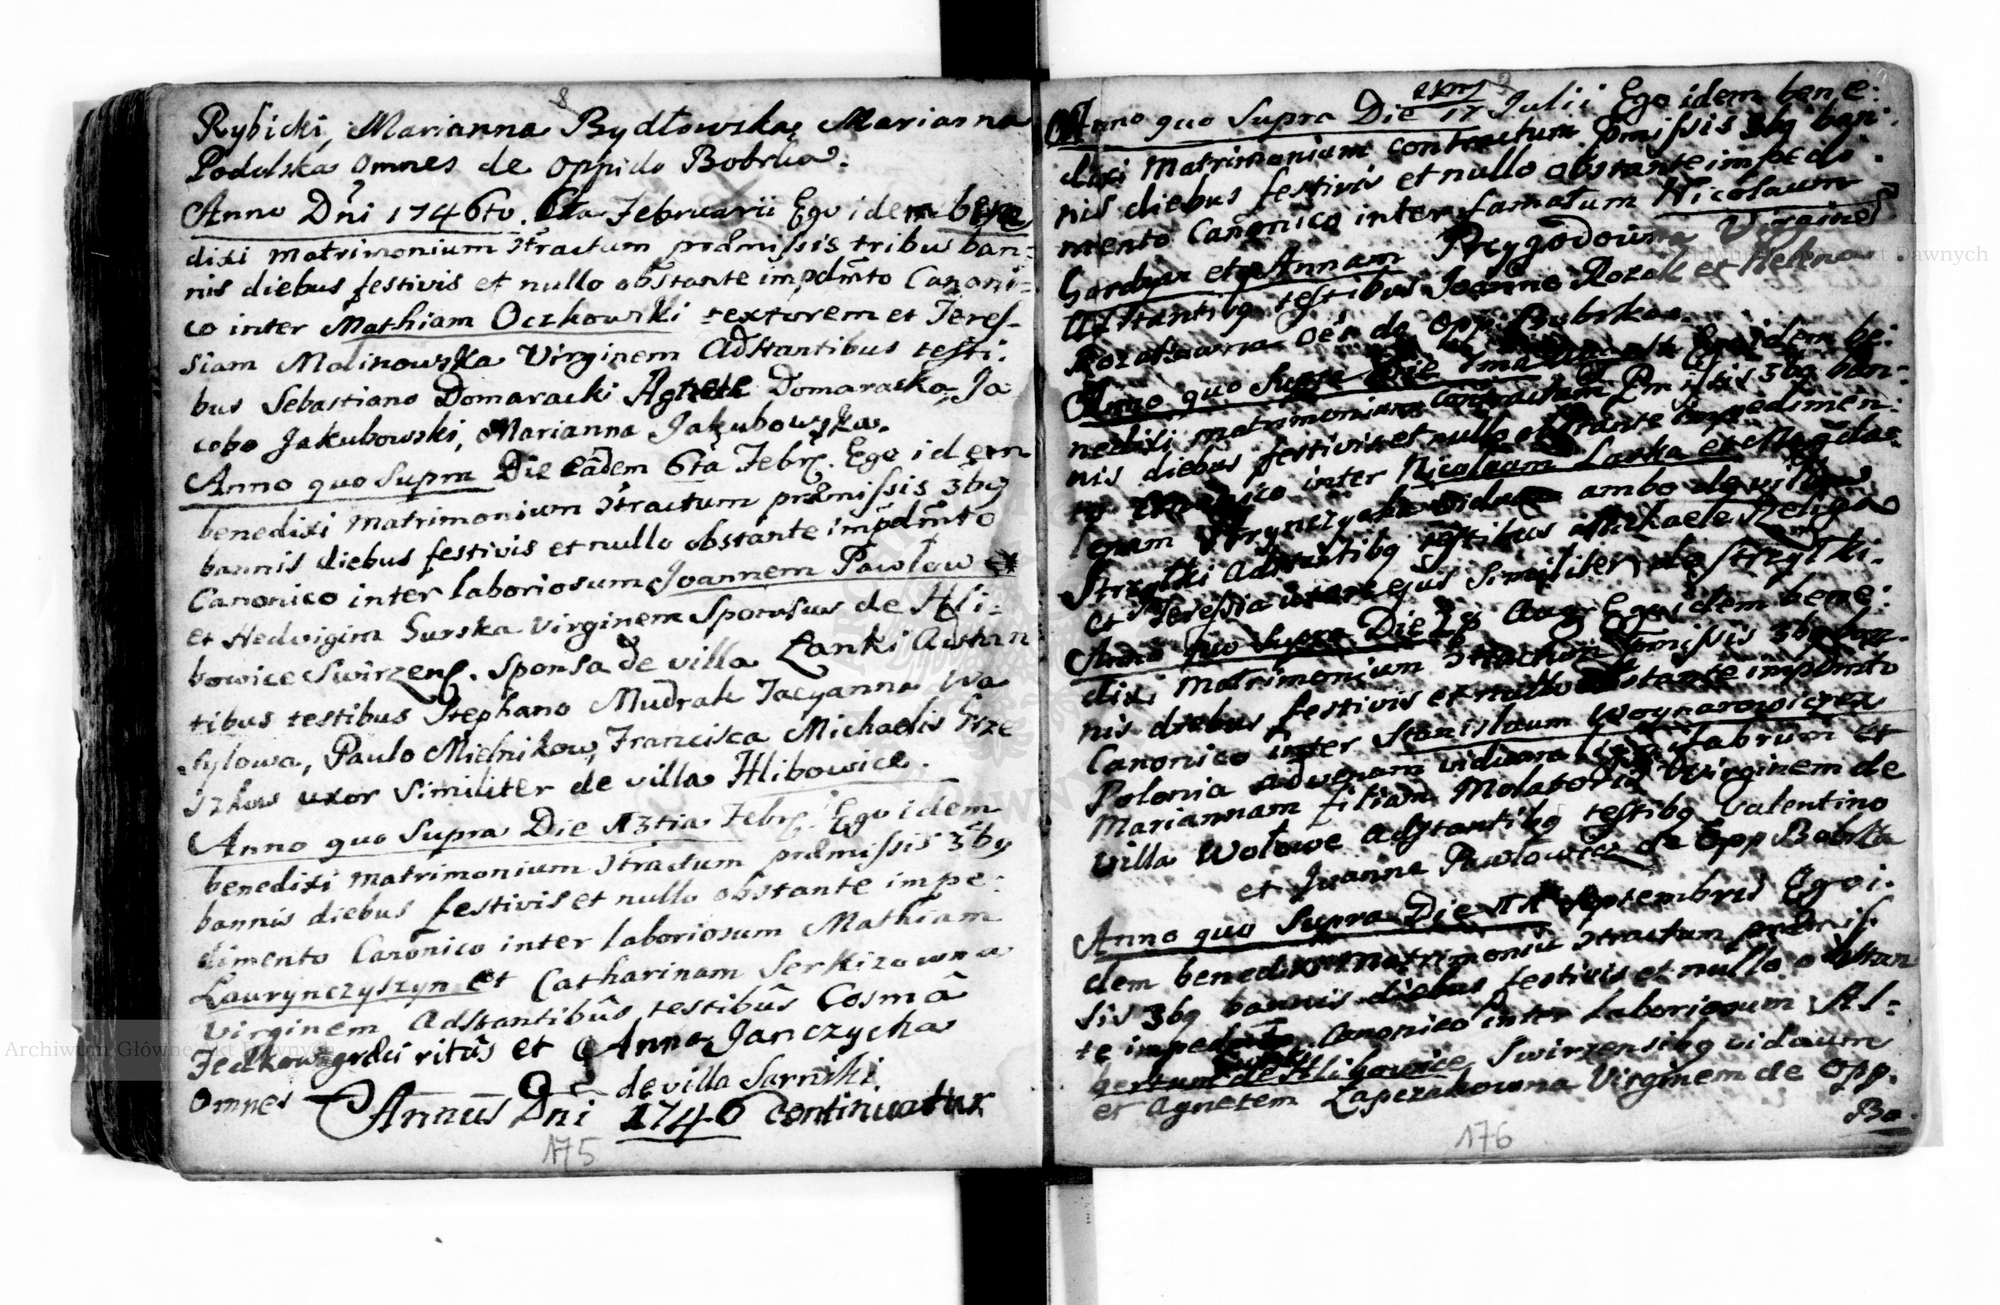 8
Rybicki, Marianna Bydłowska, Marianna
Podolska omnes de oppido Bobrka.
Anno Dni 1746to. 6ta Februarii Ego idem bene
dixi matrimonium 3tractum præmissis tribus ban:
nis diebus festivis et nullo obstante impdmto Canoni:
co inter Mathiam Oczkowski textorem et Teres-
siam Malinowska Virginem Adstantibus testi:
bus Sebastiano Domaracki Agnete Domaracka, Ja
cobo Jakubowski, Marianna Jakubowska.
Anno quo Supra Die eadem 6ta Febr. Ego idem
benedixi matrimonium 3tractum præmissis 3bq
bannis diebus festivis et nullo obstante impdmto
Canonico inter laboriosum Joannem Pawlow
et Hedvigim Gurska Virginem Sponsus de Hli:
bowice Swirzens. Sponsa de villa Łanki Adstan
tibus testibus Stephano Mudrak Tacyanna Wa
sylowa, Paulo Mielnikow, Francisca Michaelis Grze
szkow uxor similiter de villa Hlibowice.
Anno quo Supra Die 13tia Febr. Ego idem
benedixi matrimonium 3tractum præmissis 3bq
bannis diebus festivis et nullo obstante impe:
dimento Canonico inter laboriosum Mathiam
Laurynczyszyn et Catharinam Serkizowna
Virginem Adstantibus testibus Cosma
Fedkow græci ritus et Anna Janczycha
Omnes de villa Sarniki.
Annus Dni 1746 continuatur
175
9
Anno quo Supra Die 17 Julii Ego idem bene:
dixi Matrimonium contractum præmissis 3bq ban:
nis diebus festivis et nullo obstante impedi:
mento Canonico inter famatum Nicolaum
Gardyan et Annam Przygodowna Virgine
Adstantibq testibus Joanne Rozak et Helena
de Opp. Bobrka.
Anno quo Supra Die Ego idem be:
nedixi matrimonium contractum Præmissis 3bq ban:
nis diebus festivis et nullo obstante impedimen:
to Canonico inter Nicolaum Laska et Magda:
lenam ambo de villa
Strzałki Adstantibq testibus Michaele
et Teressia uxore ejus Similiter de Strzałki.
Anno quo Supra Die 28 Aug Ego idem bene:
dixi Matrimonium 3tractum præmissis 3bq ban-
nis diebus festivis et nullo obstante impdmto
Canonico inter Stanislaum Woynarowiczen
Polonia advenam viduum fabrum et
Mariannam filiam Molatoris Virginem de
Villa Wołowe Adstantibq testibq Valentino
et Joanne Pawlowicz de Opp Bobrka
Anno quo Supra Die 11 Septembris Ego i:
dem benedixi matrimoniu 3tractum præmis:
sis 3bq bannis diebus festivis et nullo obstan
te Canonico inter Laboriosum Al:
bertum de Hlibowice Swirzensibq viduum
et Agnetem Łapczakowna Virginem de Opp.
Bo
176
Archiwum Główne Akt Dawnych